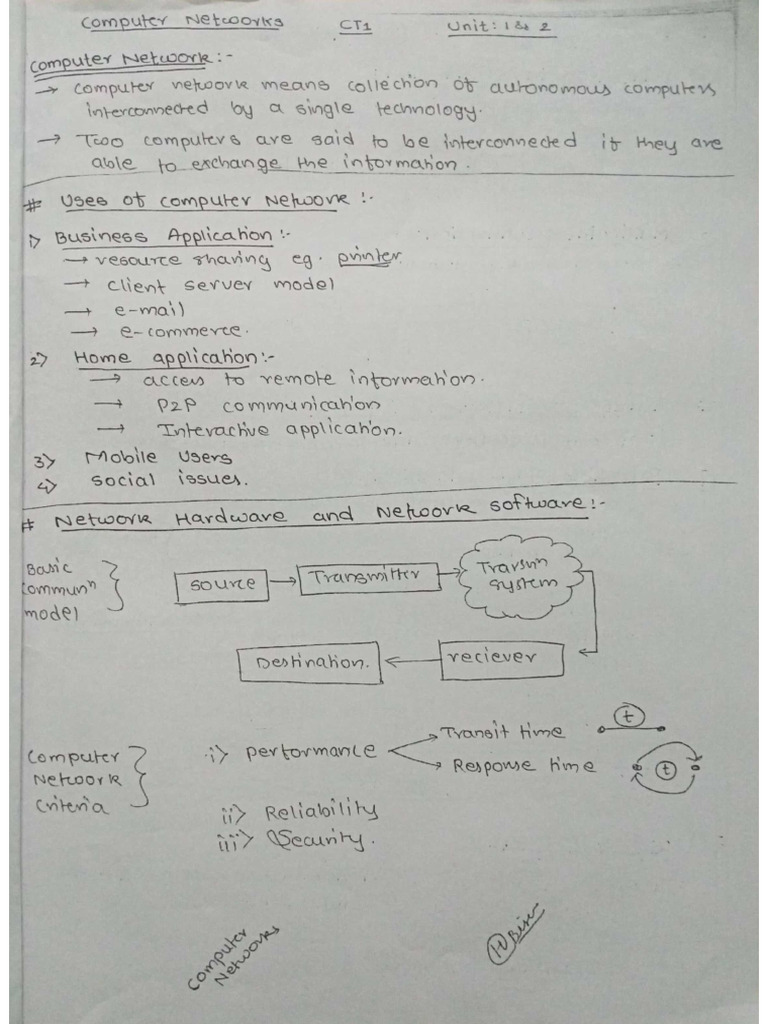 Computer Networks CT1 Unit: 1 & 2
Computer Network :-
→ Computer network means collection of autonomous computers
interconnected by a single technology.
→ Two computers are said to be interconnected if they are
able to exchange the information.
# Uses of Computer Network :-
1) Business Application :-
→ resource sharing eg. printer
→ client server model
→ e-mail
→ e-commerce.
2) Home application :-
→ access to remote information.
→ P2P communication
→ Interactive application.
3) Mobile Users
4) social issues.
# Network Hardware and Network software :-
Basic
Communn
model
source → Transmitter →
Transmn
system
Destination. ← reciever
Computer
Network
Criteria
i) performance
Transit time t
Response time t
ii) Reliability
iii) Security.
Computer
Networks